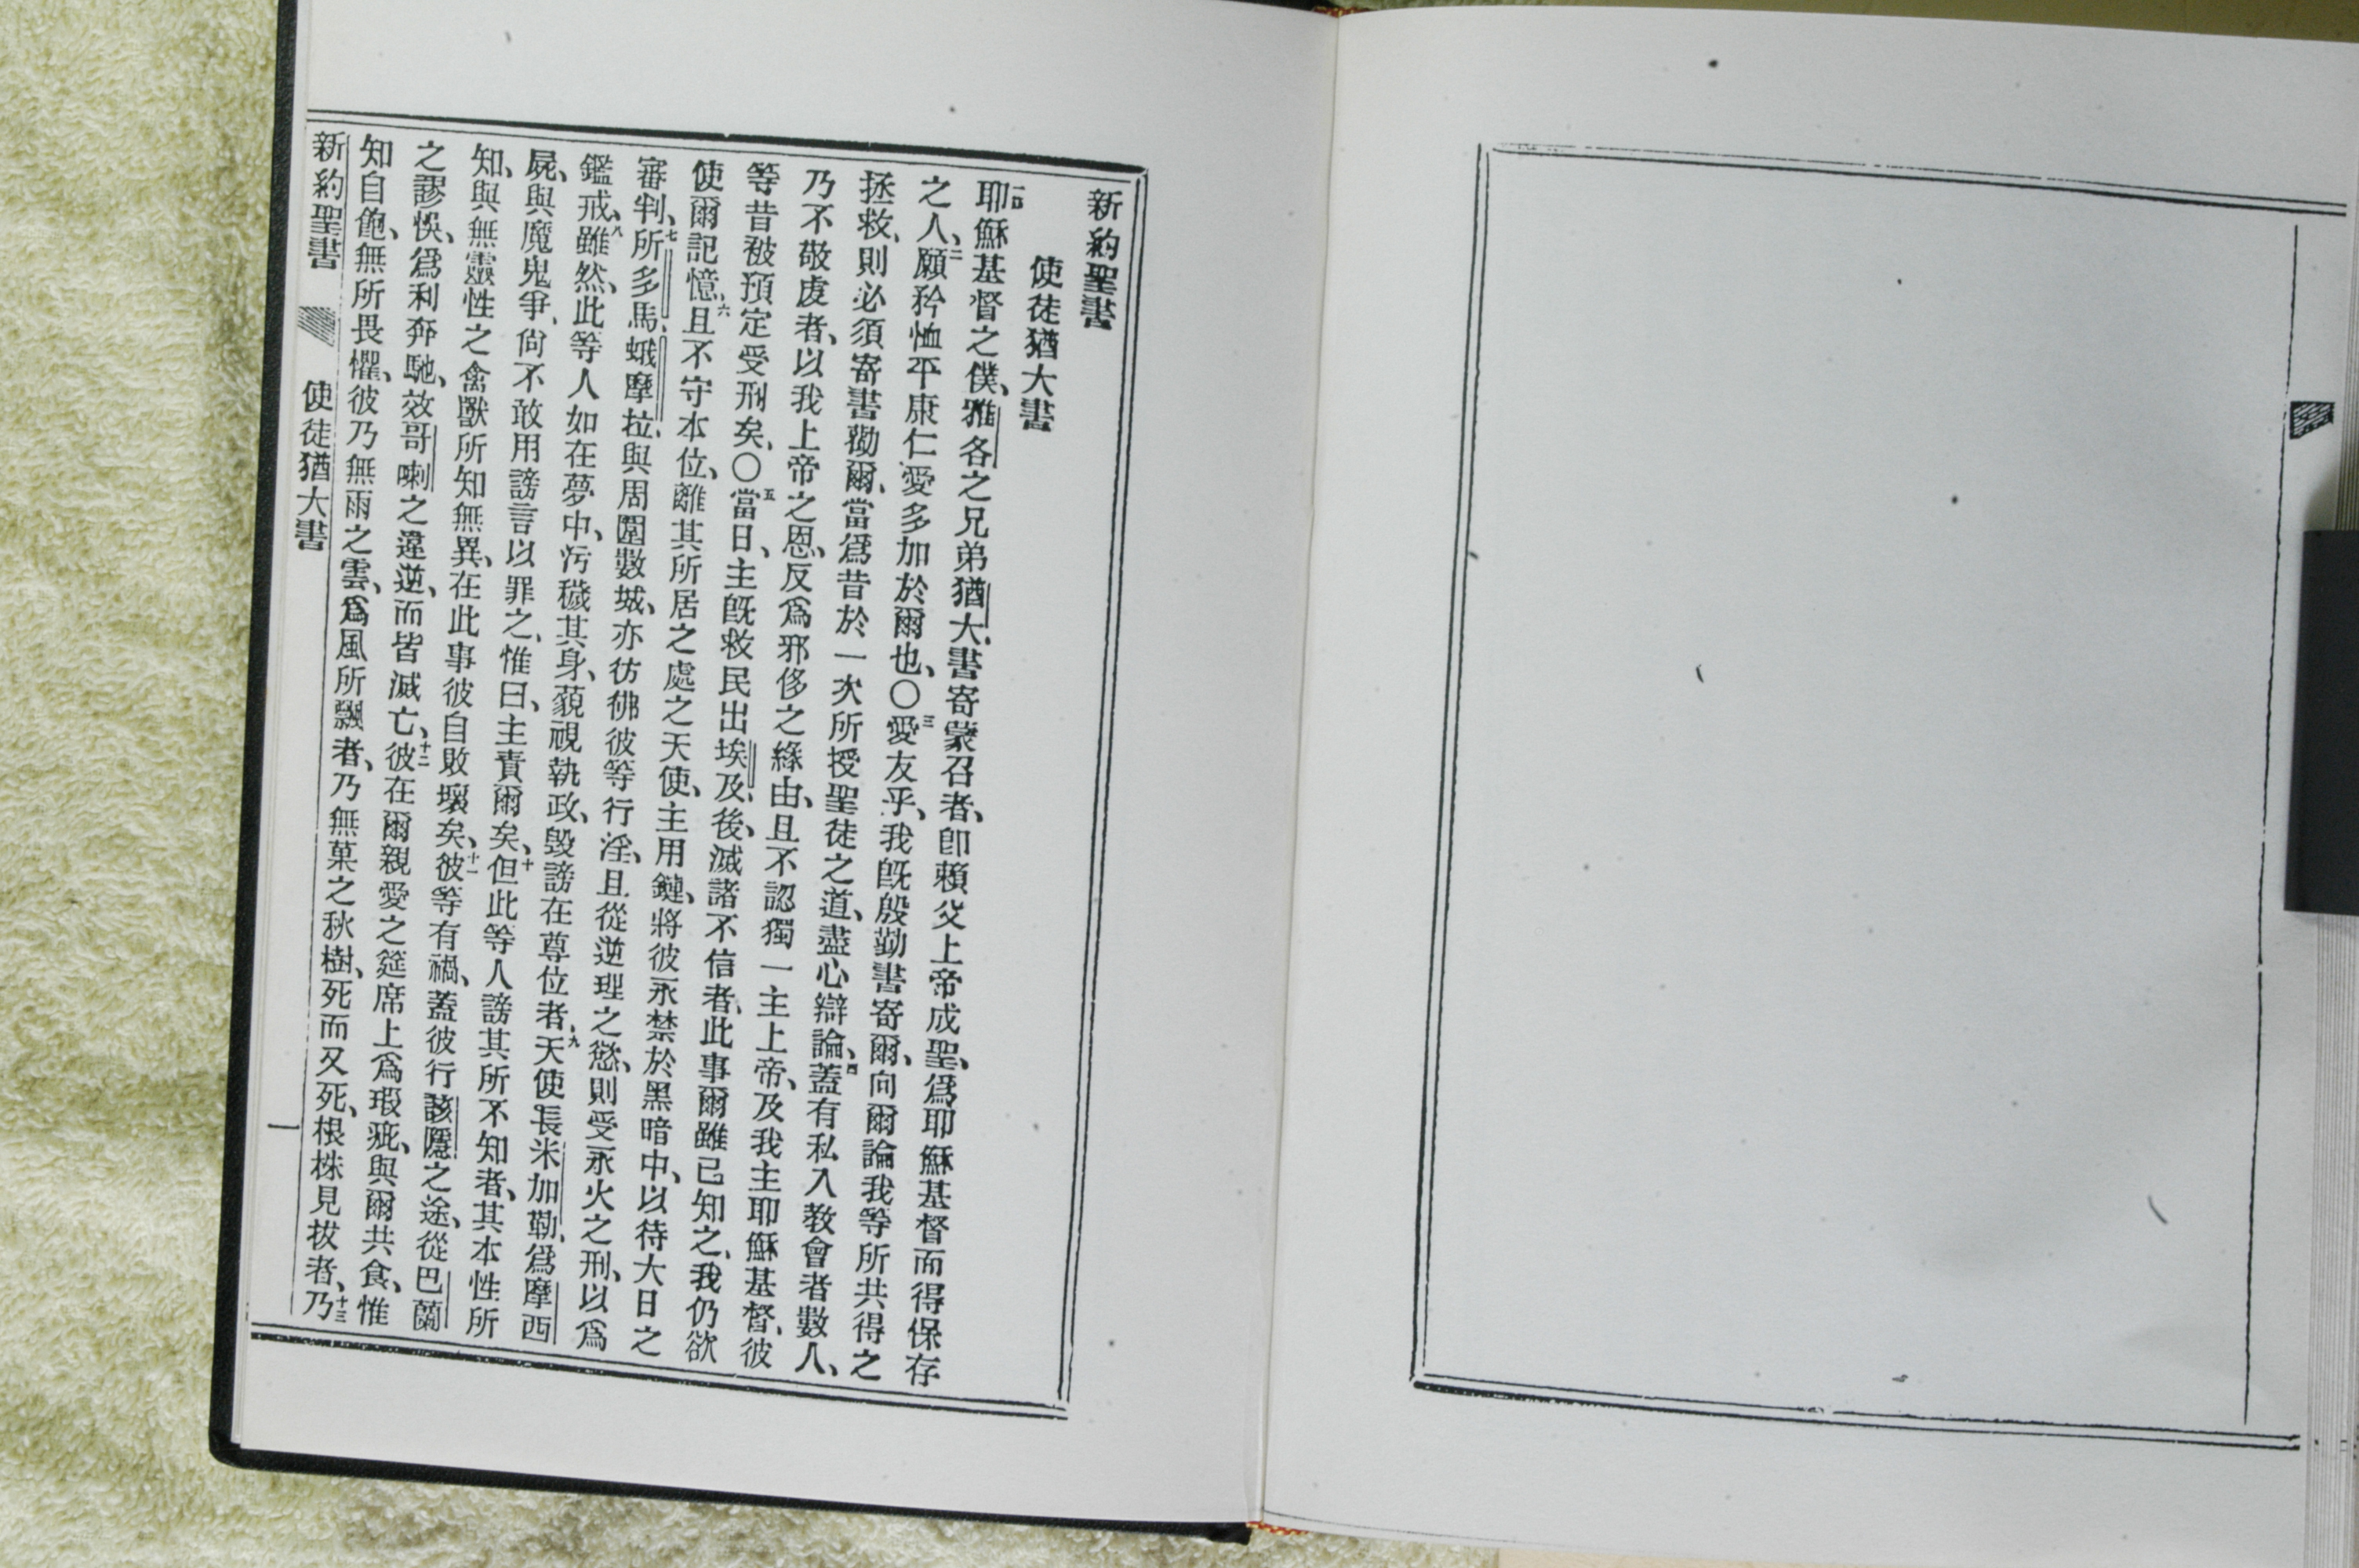 新約聖書
使徒猶大書
一節耶穌基督之僕、雅各之兄弟猶大、書寄蒙召者、卽賴父上帝成聖、爲耶穌基督而得保存
之人、二願矜恤平康仁愛多加於爾也、〇三愛友乎、我旣殷勤書寄爾、向爾論我等所共得之
拯救、則必須寄書勸爾、當爲昔於一次所授聖徒之道、盡心辯論、四蓋有私入敎會者數人、
乃不敬虔者、以我上帝之恩、反爲邪侈之緣由、且不認獨一主上帝、及我主耶穌基督、彼
等昔被預定受刑矣、〇五當日、主旣救民出埃及、後、滅諸不信者、此事爾雖已知之、我仍欲
使爾記憶、六且不守本位、離其所居之處之天使、主用鏈、將彼永禁於黑暗中、以待大日之
審判、七所多馬、蛾摩拉、與周圍數城、亦彷彿彼等行淫、且從逆理之慾、則受永火之刑、以爲
鑑戒、八雖然、此等人如在夢中、汚穢其身、藐視執政、毀謗在尊位者、九天使長米加勒、爲摩西
屍、與魔鬼爭、尙不敢用謗言以罪之、惟曰、主責爾矣、十但此等人謗其所不知者、其本性所
知、與無靈性之禽獸所知無異、在此事彼自敗壞矣、十一彼等有禍、蓋彼行該隱之途、從巴蘭
之謬悞、爲利奔馳、效哥喇之違逆、而皆滅亡、十二彼在爾親愛之筵席上爲瑕疵、與爾共食、惟
知自飽、無所畏懼、彼乃無雨之雲、爲風所飄者、乃無菓之秋樹、死而又死、根株見拔者、十三乃
新約聖書 使徒猶大書 一